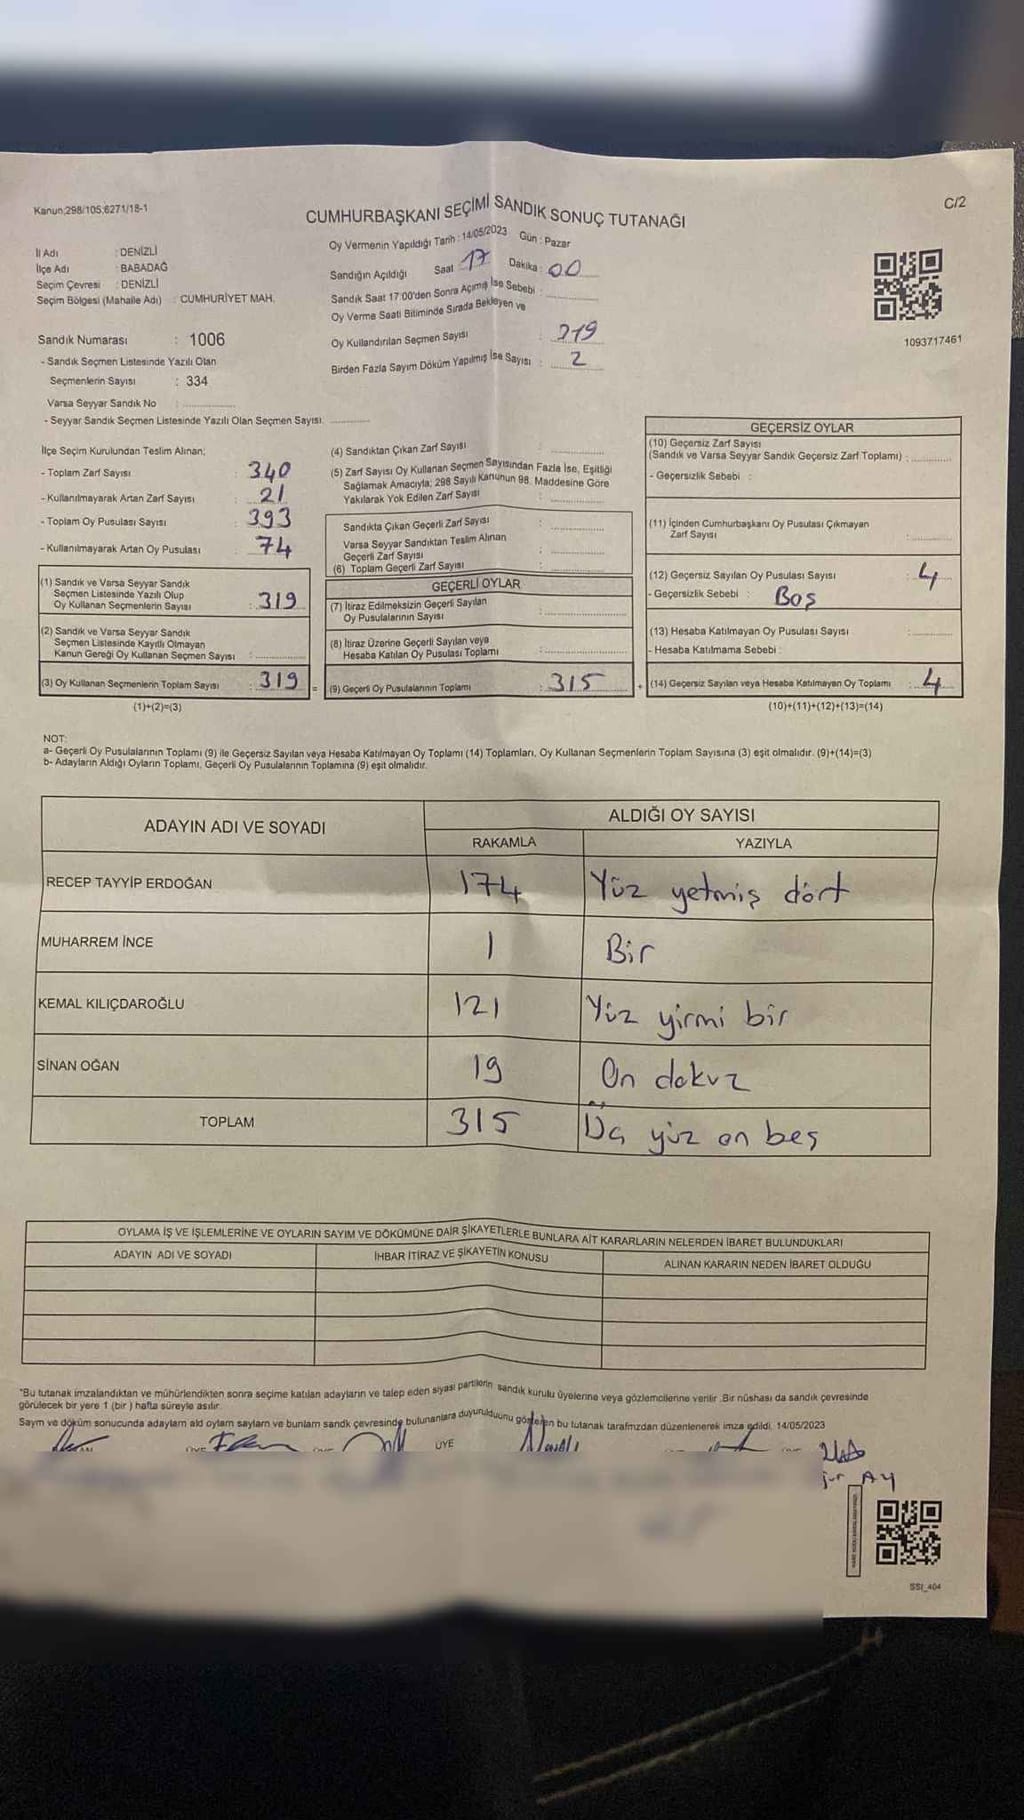 Kanun;298/105;6271/18-1
C/2
CUMHURBAŞKANI SEÇİMİ SANDIK SONUÇ TUTANAĞI
İl Adı : DENİZLİ
İlçe Adı : BABADAĞ
Seçim Çevresi : DENİZLİ
Seçim Bölgesi (Mahalle Adı) : CUMHURİYET MAH.
Oy Vermenin Yapıldığı Tarih : 14/05/2023 Gün : Pazar
Sandığın Açıldığı Saat 17 Dakika : 00
Sandık Saat 17:00'den Sonra Açımış İse Sebebi :
Oy Verme Saati Bitiminde Sırada Bekleyen ve
Oy Kullandırılan Seçmen Sayısı : 319
Birden Fazla Sayım Döküm Yapılmış İse Sayısı : 2
1093717461
Sandık Numarası : 1006
- Sandık Seçmen Listesinde Yazılı Olan
Seçmenlerin Sayısı : 334
Varsa Seyyar Sandık No :
- Seyyar Sandık Seçmen Listesinde Yazılı Olan Seçmen Sayısı.
İlçe Seçim Kurulundan Teslim Alınan;
- Toplam Zarf Sayısı : 340
- Kullanılmayarak Artan Zarf Sayısı : 21
- Toplam Oy Pusulası Sayısı : 393
- Kullanılmayarak Artan Oy Pusulası : 74
(1) Sandık ve Varsa Seyyar Sandık
Seçmen Listesinde Yazılı Olup
Oy Kullanan Seçmenlerin Sayısı : 319
(2) Sandık ve Varsa Seyyar Sandık
Seçmen Listesinde Kayıtlı Olmayan
Kanun Gereği Oy Kullanan Seçmen Sayısı :
(3) Oy Kullanan Seçmenlerin Toplam Sayısı : 319
(1)+(2)=(3)
(4) Sandıktan Çıkan Zarf Sayısı :
(5) Zarf Sayısı Oy Kullanan Seçmen Sayısından Fazla İse, Eşitliği
Sağlamak Amacıyla; 298 Sayılı Kanunun 98. Maddesine Göre
Yakılarak Yok Edilen Zarf Sayısı :
Sandıkta Çıkan Geçerli Zarf Sayısı :
Varsa Seyyar Sandıktan Teslim Alınan
Geçerli Zarf Sayısı :
(6) Toplam Geçerli Zarf Sayısı :
GEÇERLİ OYLAR
(7) İtiraz Edilmeksizin Geçerli Sayılan
Oy Pusulalarının Sayısı :
(8) İtiraz Üzerine Geçerli Sayılan veya
Hesaba Katılan Oy Pusulası Toplamı :
= (9) Geçerli Oy Pusulalarının Toplamı : 315
GEÇERSİZ OYLAR
(10) Geçersiz Zarf Sayısı
(Sandık ve Varsa Seyyar Sandık Geçersiz Zarf Toplamı) :
- Geçersizlik Sebebi :
(11) İçinden Cumhurbaşkanı Oy Pusulası Çıkmayan
Zarf Sayısı :
(12) Geçersiz Sayılan Oy Pusulası Sayısı : 4
- Geçersizlik Sebebi : Boş
(13) Hesaba Katılmayan Oy Pusulası Sayısı :
- Hesaba Katılmama Sebebi :
+ (14) Geçersiz Sayılan veya Hesaba Katılmayan Oy Toplamı : 4
(10)+(11)+(12)+(13)=(14)
NOT:
a- Geçerli Oy Pusulalarının Toplamı (9) ile Geçersiz Sayılan veya Hesaba Katılmayan Oy Toplamı (14) Toplamları, Oy Kullanan Seçmenlerin Toplam Sayısına (3) eşit olmalıdır. (9)+(14)=(3)
b- Adayların Aldığı Oyların Toplamı, Geçerli Oy Pusulalarının Toplamına (9) eşit olmalıdır.
ADAYIN ADI VE SOYADI
ALDIĞI OY SAYISI
RAKAMLA YAZIYLA
RECEP TAYYİP ERDOĞAN 174 Yüz yetmiş dört
MUHARREM İNCE 1 Bir
KEMAL KILIÇDAROĞLU 121 Yüz yirmi bir
SİNAN OĞAN 19 On dokuz
TOPLAM 315 Üç yüz on beş
OYLAMA İŞ VE İŞLEMLERİNE VE OYLARIN SAYIM VE DÖKÜMÜNE DAİR ŞİKAYETLERLE BUNLARA AİT KARARLARIN NELERDEN İBARET BULUNDUKLARI
ADAYIN ADI VE SOYADI İHBAR İTİRAZ VE ŞİKAYETİN KONUSU ALINAN KARARIN NEDEN İBARET OLDUĞU
*Bu tutanak imzalandıktan ve mühürlendikten sonra seçime katılan adayların ve talep eden siyasi partilerin sandık kurulu üyelerine veya gözlemcilerine verilir .Bir nüshası da sandık çevresinde
görülecek bir yere 1 (bir ) hafta süreyle asılır.
Sayım ve döküm sonucunda adaylarn ald oylarn saylarn ve bunlarn sandk çevresinde bulunanlara duyurulduunu gösteren bu tutanak tarafmzdan düzenlenerek imza edildi. 14/05/2023
ÜYE
SSI_404